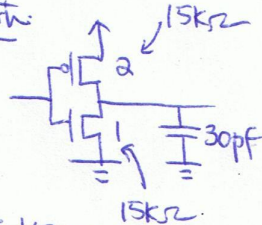 15kΩ
2
1
30pf
15kΩ.